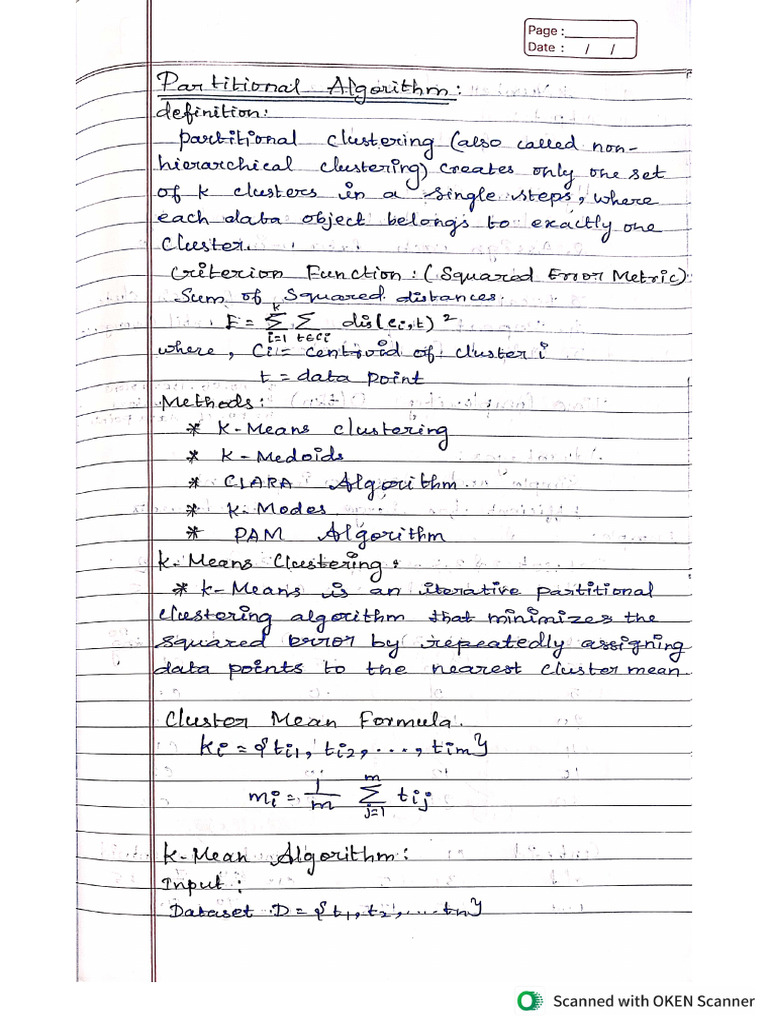 Page :
Date : / /
Partitional Algorithm:
definition:
partitional clustering (also called non-
hierarchical clustering) creates only one set
of k clusters in a single steps, where
each data object belongs to exactly one
cluster.
Criterion Function: (Squared Error Metric)
Sum of squared distances.
E = k∑i=1 ∑t∈ci dis(ci,t)²
where, Ci = centroid of cluster i
t = data point
Methods:
* K-Means clustering
* K-Medoids
* CLARA Algorithm.
* K-Modes
* PAM Algorithm
K-Means Clustering:
* K-Means is an iterative partitional
clustering algorithm that minimizes the
squared error by repeatedly assigning
data points to the nearest cluster mean
Cluster Mean Formula.
Ki = {ti1, ti2, ..., tim}
mi = 1/m m∑j=1 tij
K-Mean Algorithm:
Input:
Dataset D = {t1, t2, ... tn}
Scanned with OKEN Scanner